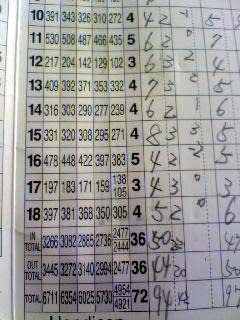 10 391 343 326 310 272 4 4 2 5
11 530 508 487 466 435 5 6 2 0 7
12 217 204 142 129 102 3 6 3 2 4
13 409 392 371 353 332 4 7 3 5
14 316 303 290 277 239 4 6 2 1 6
15 331 320 308 295 271 4 8 3 3 5
16 478 448 422 397 383 5 4 2 5
17 197 183 171 159 138 105 3 4 3 0 3
18 397 381 368 350 305 4 5 2 0 6
IN TOTAL 3266 3082 2885 2736 2477 2444 36 50
OUT TOTAL 3445 3272 3140 2994 2477 36 44 20
TOTAL 6711 6354 6025 5730 4954 4921 72 94